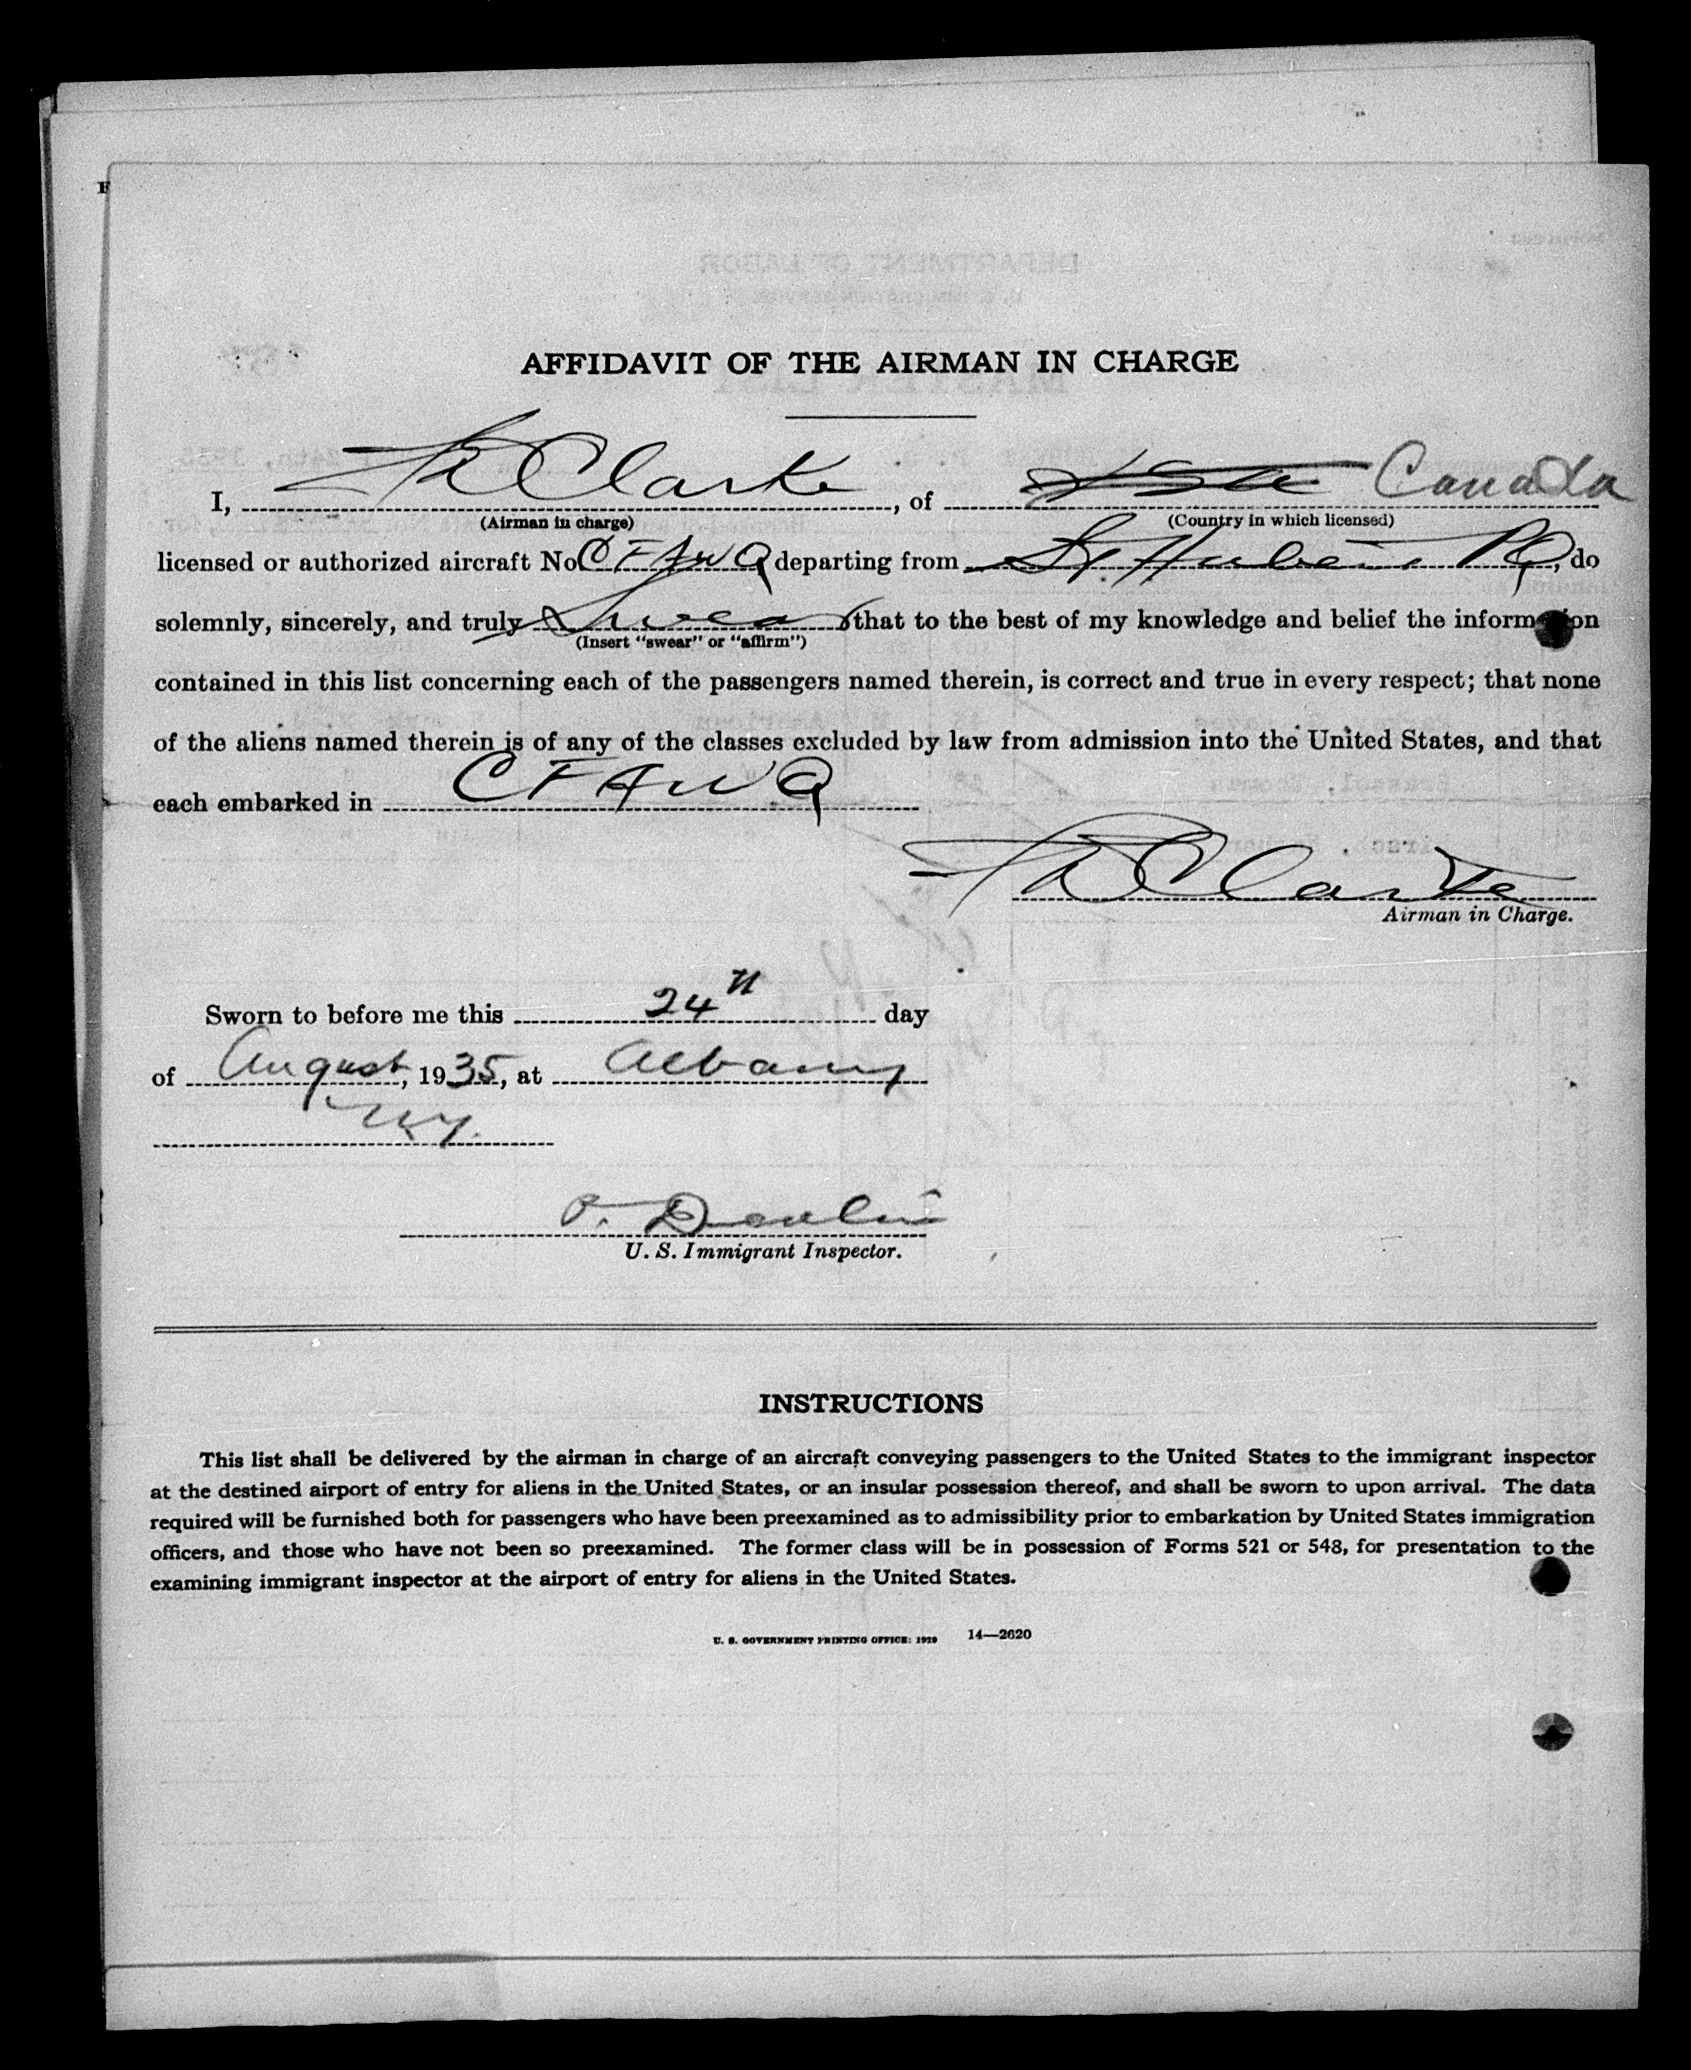 AFFIDAVIT OF THE AIRMAN IN CHARGE
I, Clarke, of Canada
(Airman in charge) (Country in which licensed)
licensed or authorized aircraft No CFAWQ departing from St. Hubert PQ, do
solemnly, sincerely, and truly Swear that to the best of my knowledge and belief the information
(Insert "swear" or "affirm")
contained in this list concerning each of the passengers named therein, is correct and true in every respect; that none
of the aliens named therein is of any of the classes excluded by law from admission into the United States, and that
each embarked in CFAWQ
Clarke
Airman in Charge.
Sworn to before me this 24th day
of August, 1935, at Albany
NY.
Devlin
U. S. Immigrant Inspector.
INSTRUCTIONS
This list shall be delivered by the airman in charge of an aircraft conveying passengers to the United States to the immigrant inspector
at the destined airport of entry for aliens in the United States, or an insular possession thereof, and shall be sworn to upon arrival. The data
required will be furnished both for passengers who have been preexamined as to admissibility prior to embarkation by United States immigration
officers, and those who have not been so preexamined. The former class will be in possession of Forms 521 or 548, for presentation to the
examining immigrant inspector at the airport of entry for aliens in the United States.
U. S. GOVERNMENT PRINTING OFFICE: 1929 14—2620